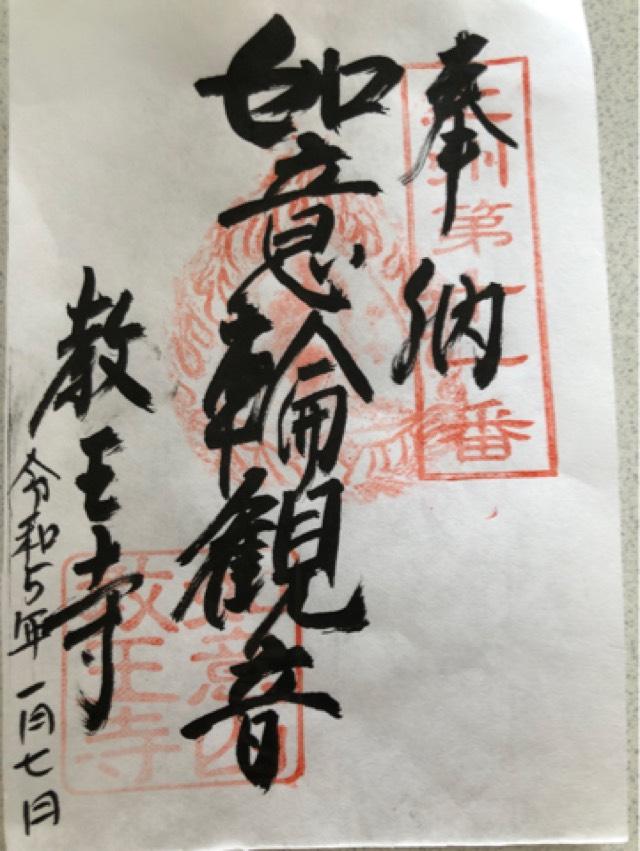 奉納
如意輪観音
教王寺
令和5年一月七日
第
番
教王寺